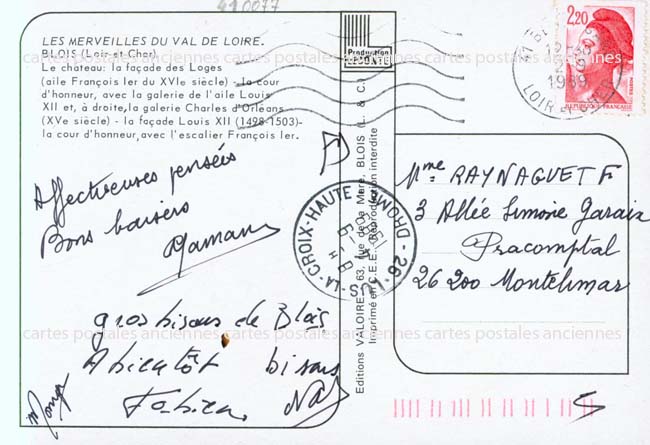 410077
LES MERVEILLES DU VAL DE LOIRE.
BLOIS (Loir-et-Cher)
Le château: la façade des Loges
(aile François Ier du XVIe siècle) - la cour
d'honneur, avec la galerie de l'aile Louis
XII et, à droite, la galerie Charles d'Orléans
(XVe siècle) - la façade Louis XII (1498-1503)-
la cour d'honneur, avec l'escalier François Ier.
Affectueuses pensées
Bons baisers
Maman
gros bisous de Blois
A bientôt bisous
Fabien Nat
Production
LECONTE
Editions VALOIRE, 63, rue de la Mare, BLOIS (L. & C.)
Imprimé en C.E.E. Reproduction interdite
26 - LUS-LA-CROIX-HAUTE - DROME
2,20
REPUBLIQUE FRANÇAISE
POSTES
1989
LOIR ET CHER
Mme RAYNAGUET F
3 Allée Simone Garaix
Pracomptal
26200 Montelimar
cartes postales anciennes cartes postales anciennes cartes postales anciennes
cartes postales anciennes cartes postales anciennes cartes postales anciennes
cartes postales anciennes cartes postales anciennes cartes postales anciennes